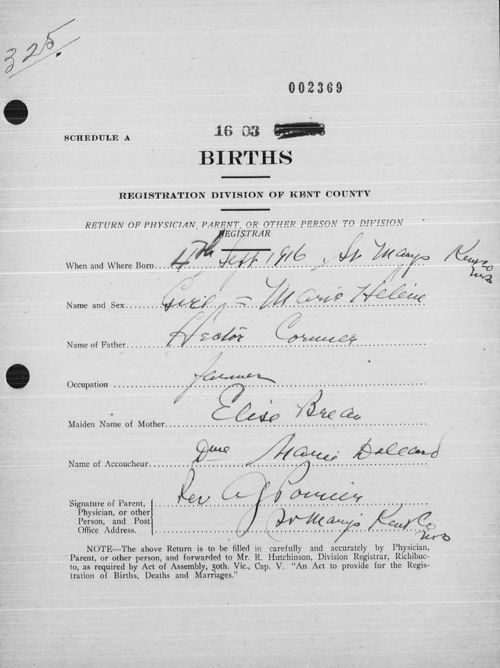 325.
002369
SCHEDULE A
16 03
BIRTHS
REGISTRATION DIVISION OF KENT COUNTY
RETURN OF PHYSICIAN, PARENT, OR OTHER PERSON TO DIVISION
REGISTRAR
When and Where Born 4th Sept 1916, St Marys Kent Co
NB
Name and Sex Girl = Marie Hélène
Name of Father Hector Cormier
Occupation farmer
Maiden Name of Mother Elise Breau
Name of Accoucheur Dme Marie
Signature of Parent, Rev A J Poirier
Physician, or other
Person, and Post St Marys Kent Co
Office Address. NB
NOTE—The above Return is to be filled in carefully and accurately by Physician,
Parent, or other person, and forwarded to Mr. R. Hutchinson, Division Registrar, Richibuc-
to, as required by Act of Assembly, 50th. Vic., Cap. V. "An Act to provide for the Regis-
tration of Births, Deaths and Marriages."